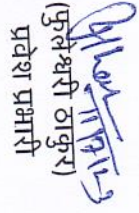 (फुलेश्वरी ठाकुर)
प्रवेश प्रभारी